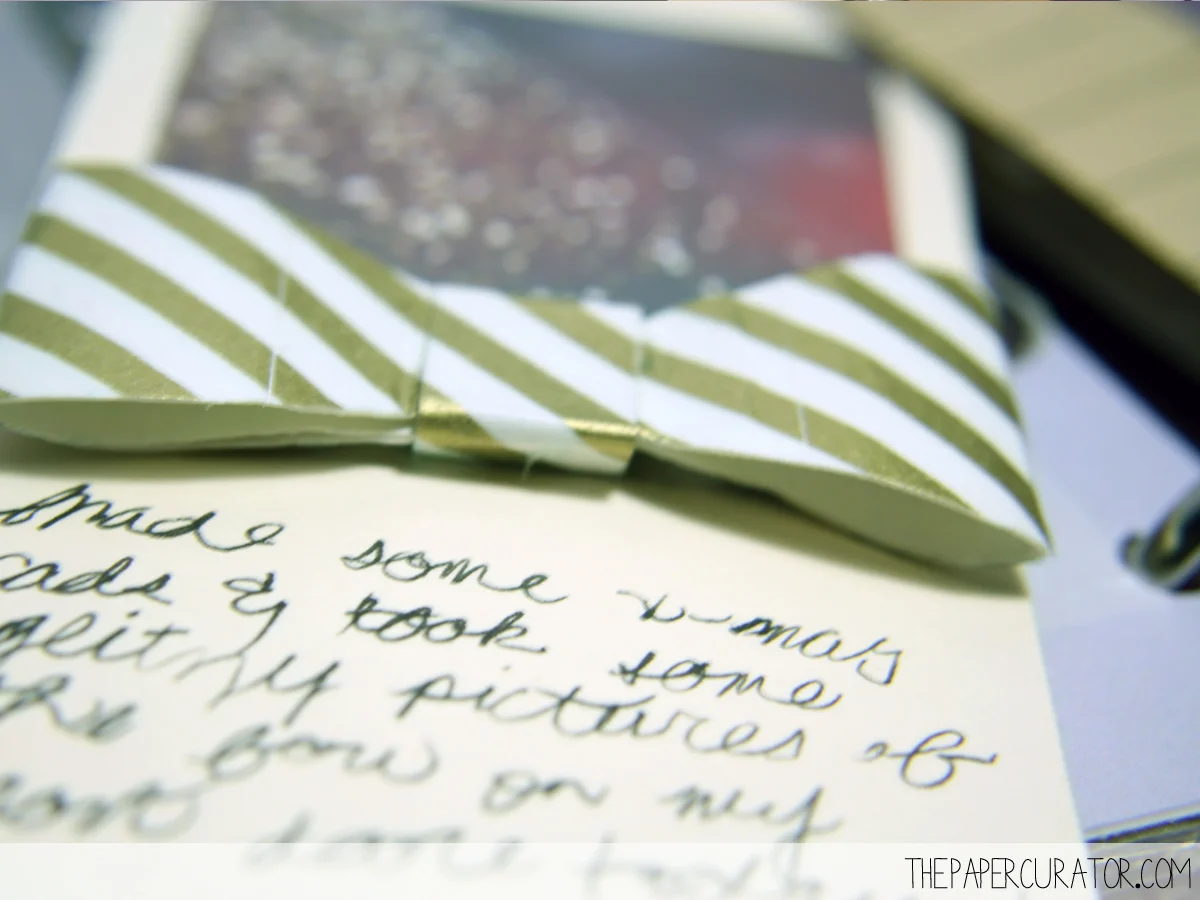 made some x-mas
cads & took some
glittery pictures of
the bow on my
THEPAPERCURATOR.COM